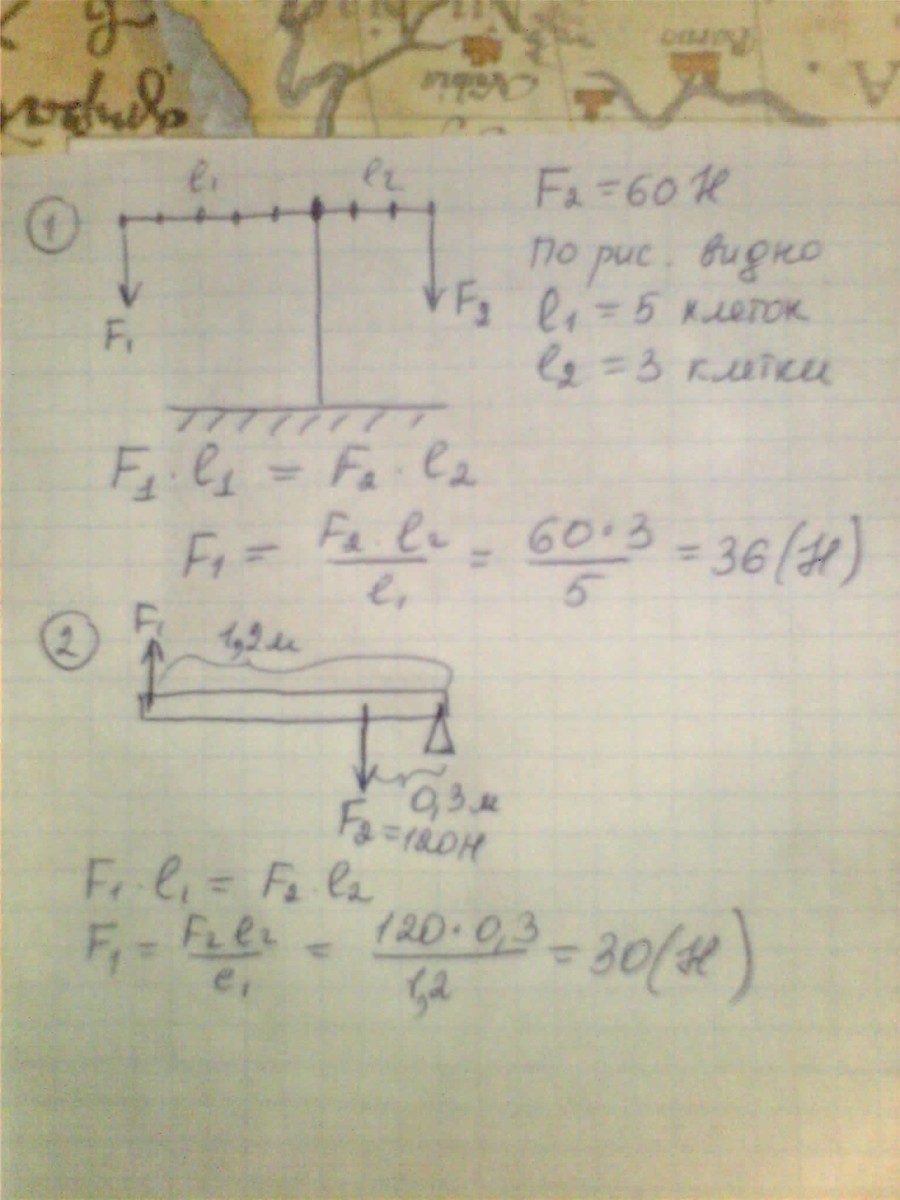 ① l₁ l₂
F₁ F₂
F₂ = 60 Н
по рис. видно
l₁ = 5 клеток
l₂ = 3 клетки
F₁ · l₁ = F₂ · l₂
F₁ = F₂ · l₂ / l₁ = 60 · 3 / 5 = 36 (Н)
② F₁ 1,2 м
0,3 м
F₂ = 120 Н
F₁ · l₁ = F₂ · l₂
F₁ = F₂ l₂ / l₁ = 120 · 0,3 / 1,2 = 30 (Н)